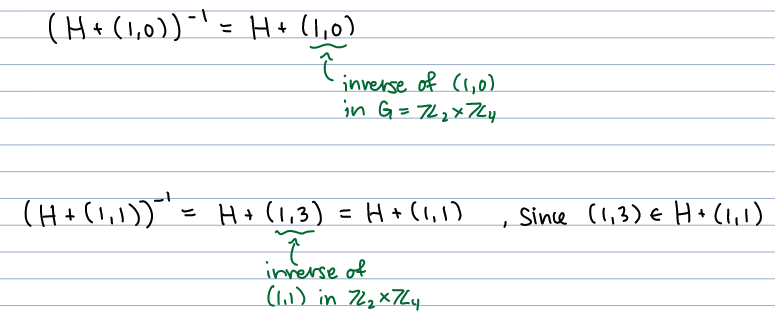 (H + (1,0))⁻¹ = H + (1,0)
inverse of (1,0)
in G = ℤ₂×ℤ₄
(H + (1,1))⁻¹ = H + (1,3) = H + (1,1) , since (1,3) ∈ H + (1,1)
inverse of
(1,1) in ℤ₂×ℤ₄